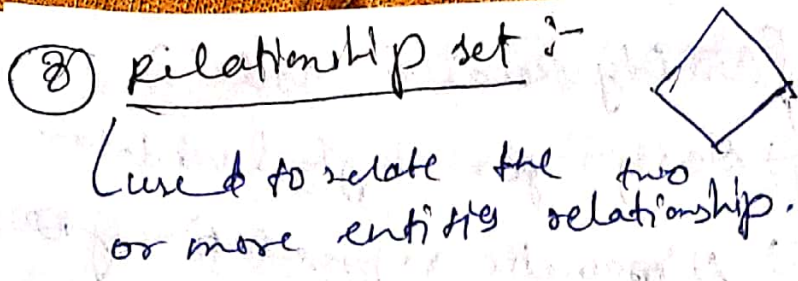 8 Relationship set :-
used to relate the two
or more entities relationship.